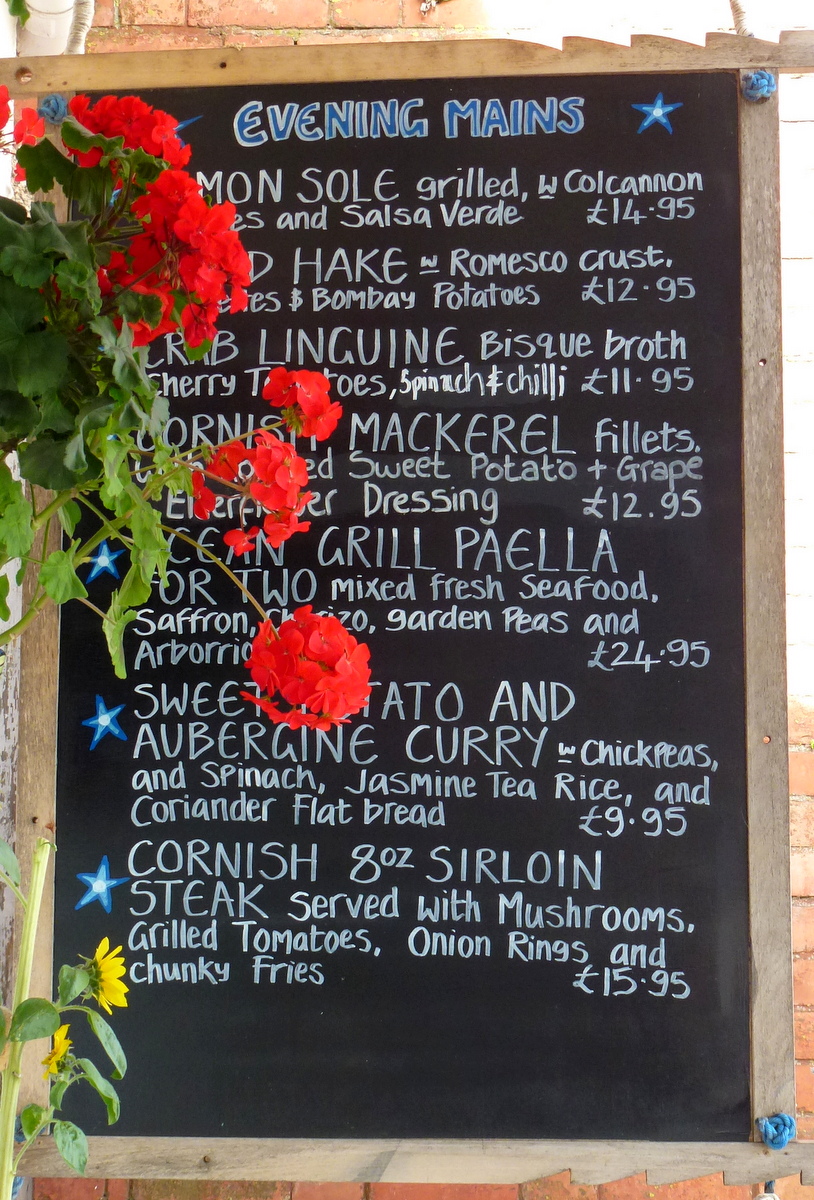 EVENING MAINS
MON SOLE grilled, w Colcannon
and Salsa Verde £14.95
HAKE w Romesco crust.
& Bombay Potatoes £12.95
CRAB LINGUINE Bisque broth
cherry Tomatoes, Spinach & chilli £11.95
CORNISH MACKEREL fillets.
Sweet Potato + Grape
Dressing £12.95
OCEAN GRILL PAELLA
FOR TWO mixed fresh Seafood.
Saffron, Chorizo, garden Peas and
Arborrio £24.95
SWEET POTATO AND
AUBERGINE CURRY w Chickpeas,
and Spinach, Jasmine Tea Rice, and
Coriander Flat bread £9.95
CORNISH 8oz SIRLOIN
STEAK Served with Mushrooms.
Grilled Tomatoes, Onion Rings and
chunky Fries £15.95